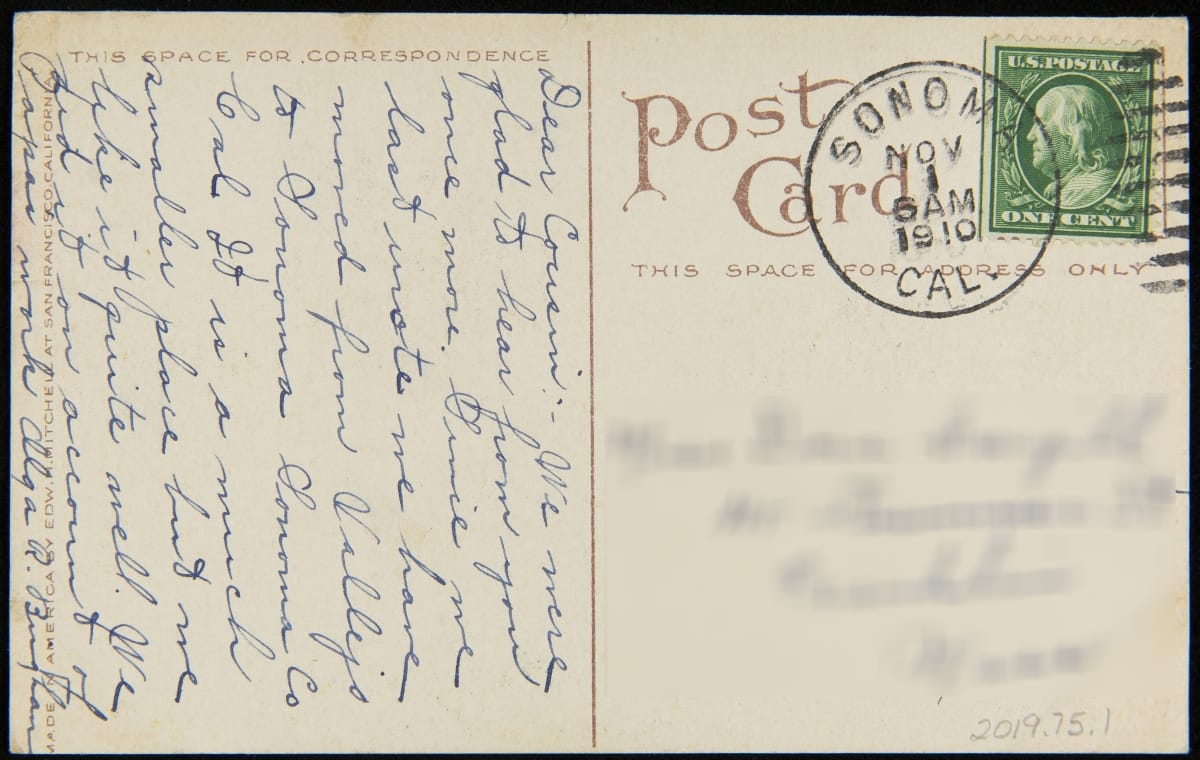 THIS SPACE FOR CORRESPONDENCE
Dear Cousin:- We were
glad to hear from you
once more. Since we
last wrote we have
moved from Vallejo
to Sonoma Sonoma Co
Cal It is a much
smaller place but we
like it quite well. We
did it on account of
Papas work Alga R.
MADE IN AMERICA BY EDW. H. MITCHELL AT SAN FRANCISCO, CALIFORNIA
Post
Card
SONOMA
NOV
1
8AM
1910
CAL.
U.S. POSTAGE
ONE CENT
THIS SPACE FOR ADDRESS ONLY
2019.75.1